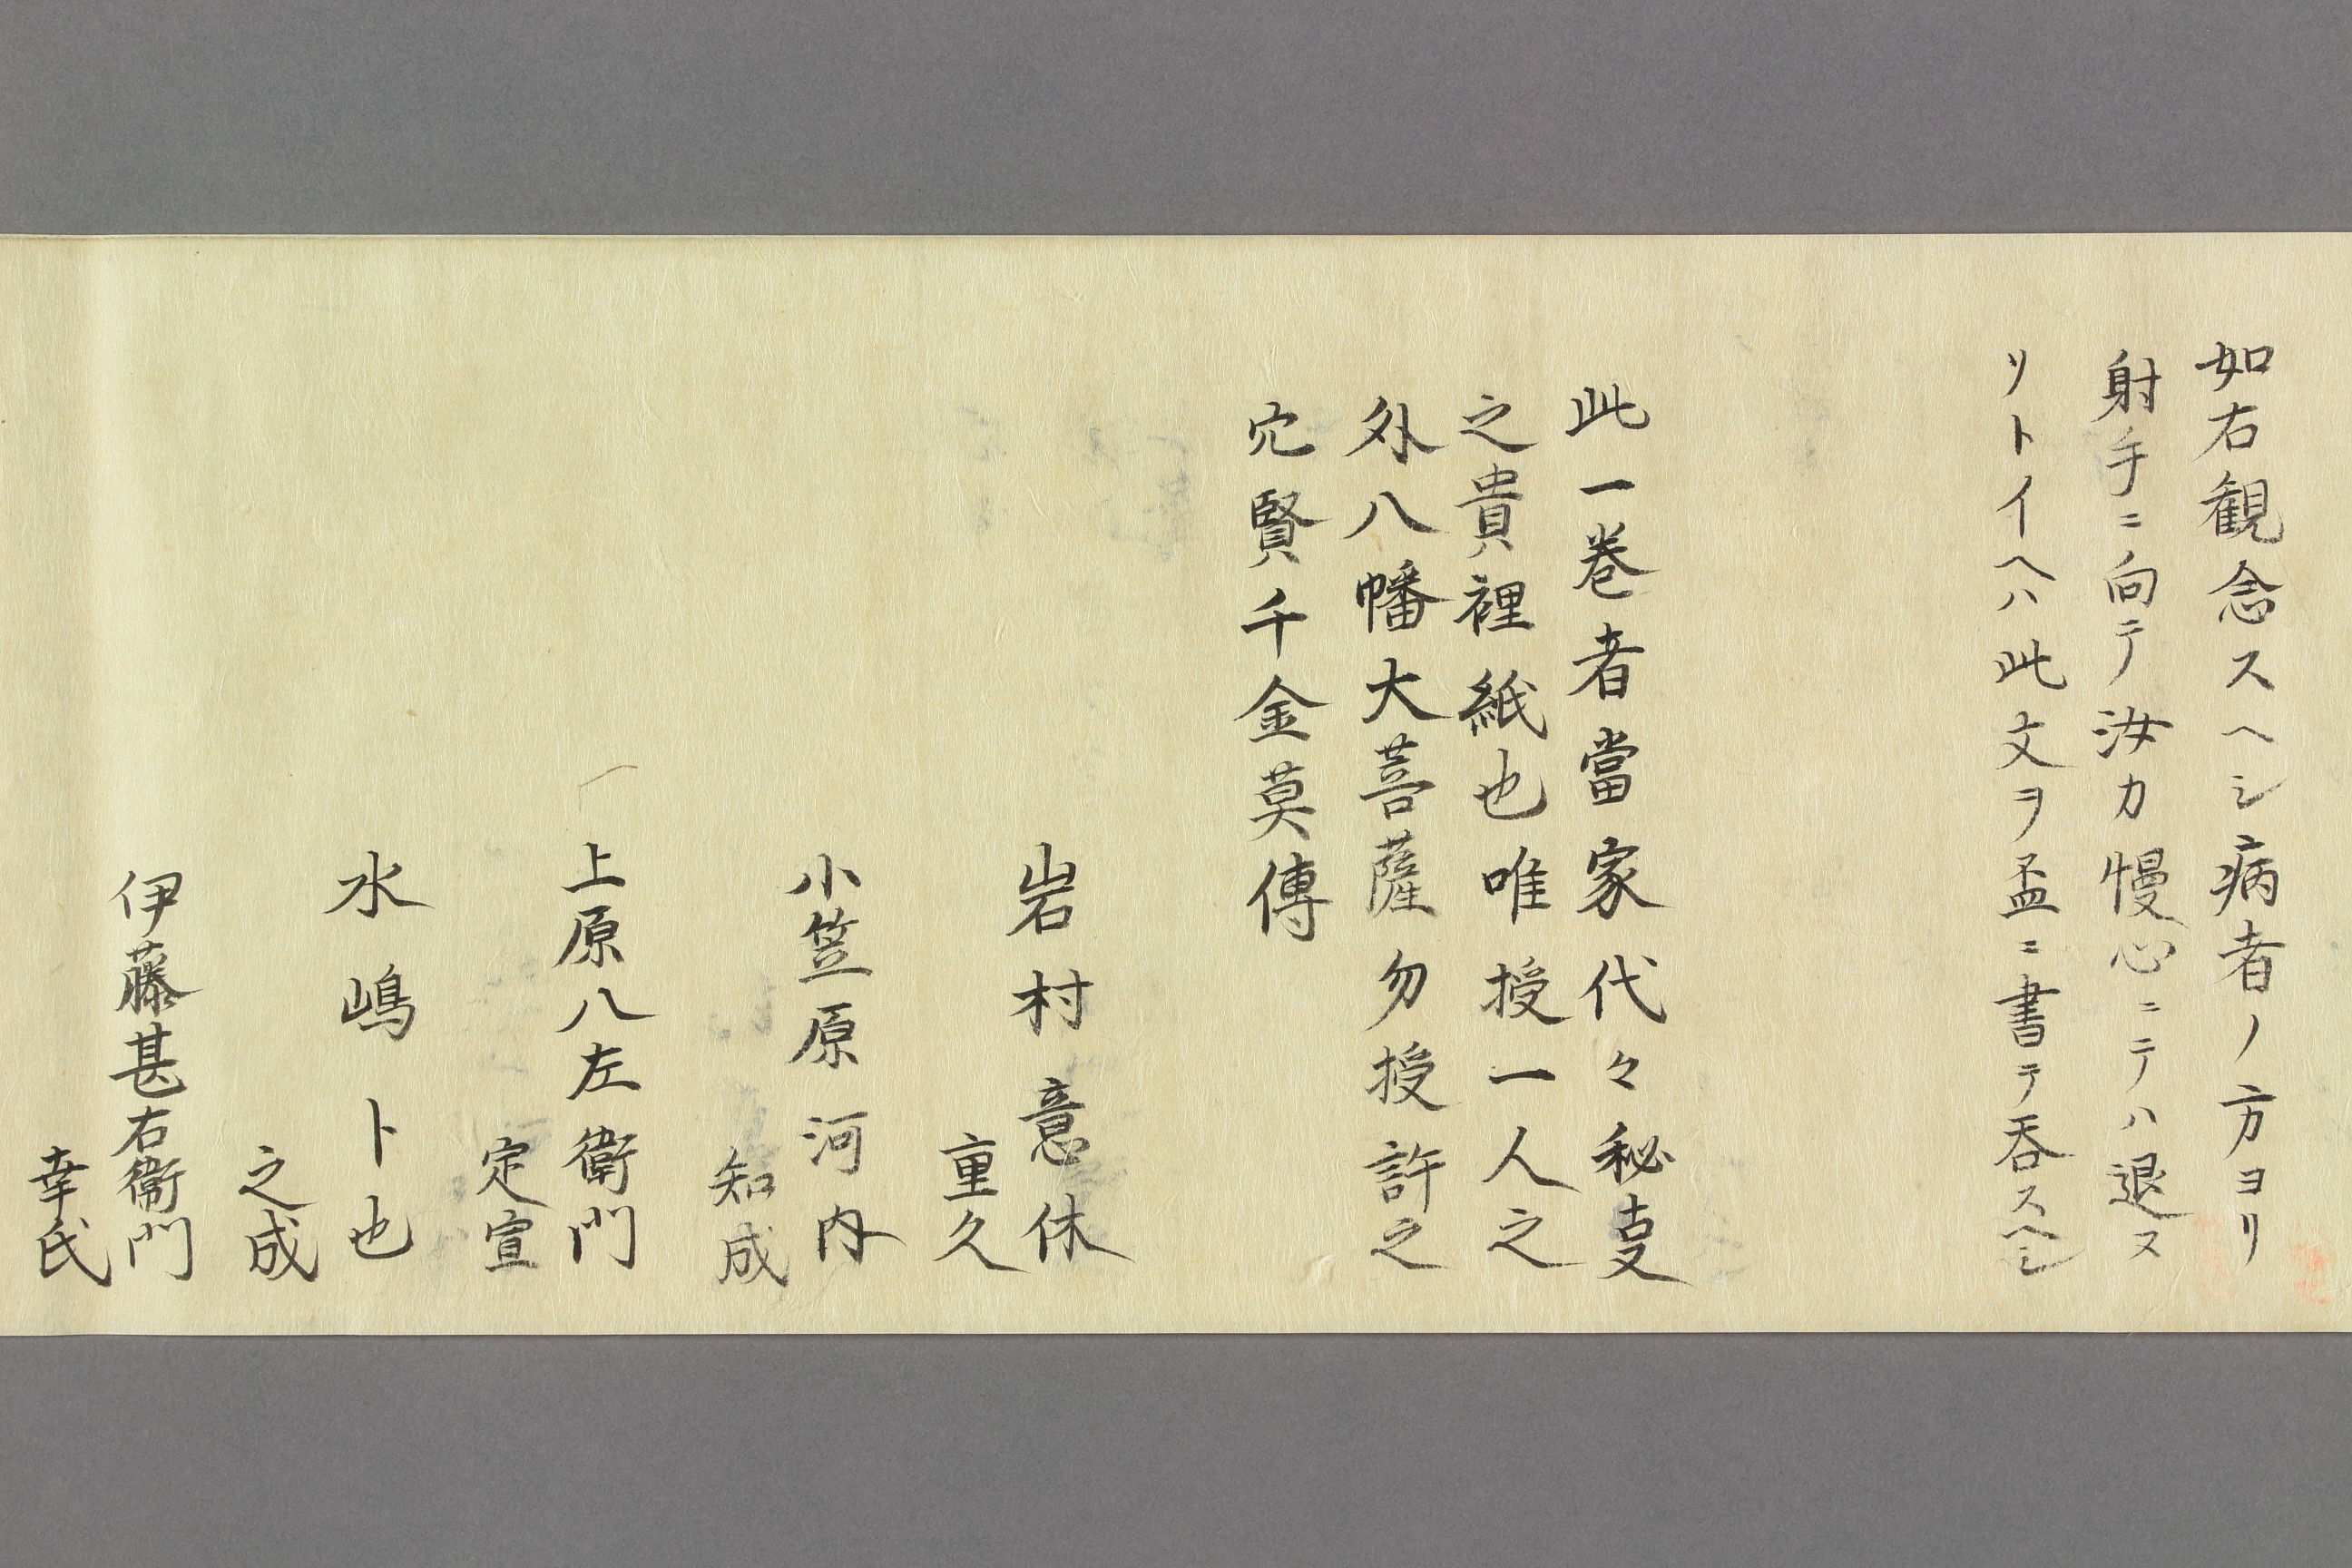 如右観念スヘシ病者ノ方ヨリ
射手ニ向テ汝カ慢心ニテハ退ス
リトイヘハ此文ヲ盃ニ書テ呑スヘシ
此一巻者當家代々秘㕝
之貴裡紙也唯授一人之
外八幡大菩薩勿授許之
穴賢千金莫傳
岩村意休
重久
小笠原河内
知成
上原八左衛門
定宣
水嶋卜也
之成
伊藤甚右衛門
幸氏